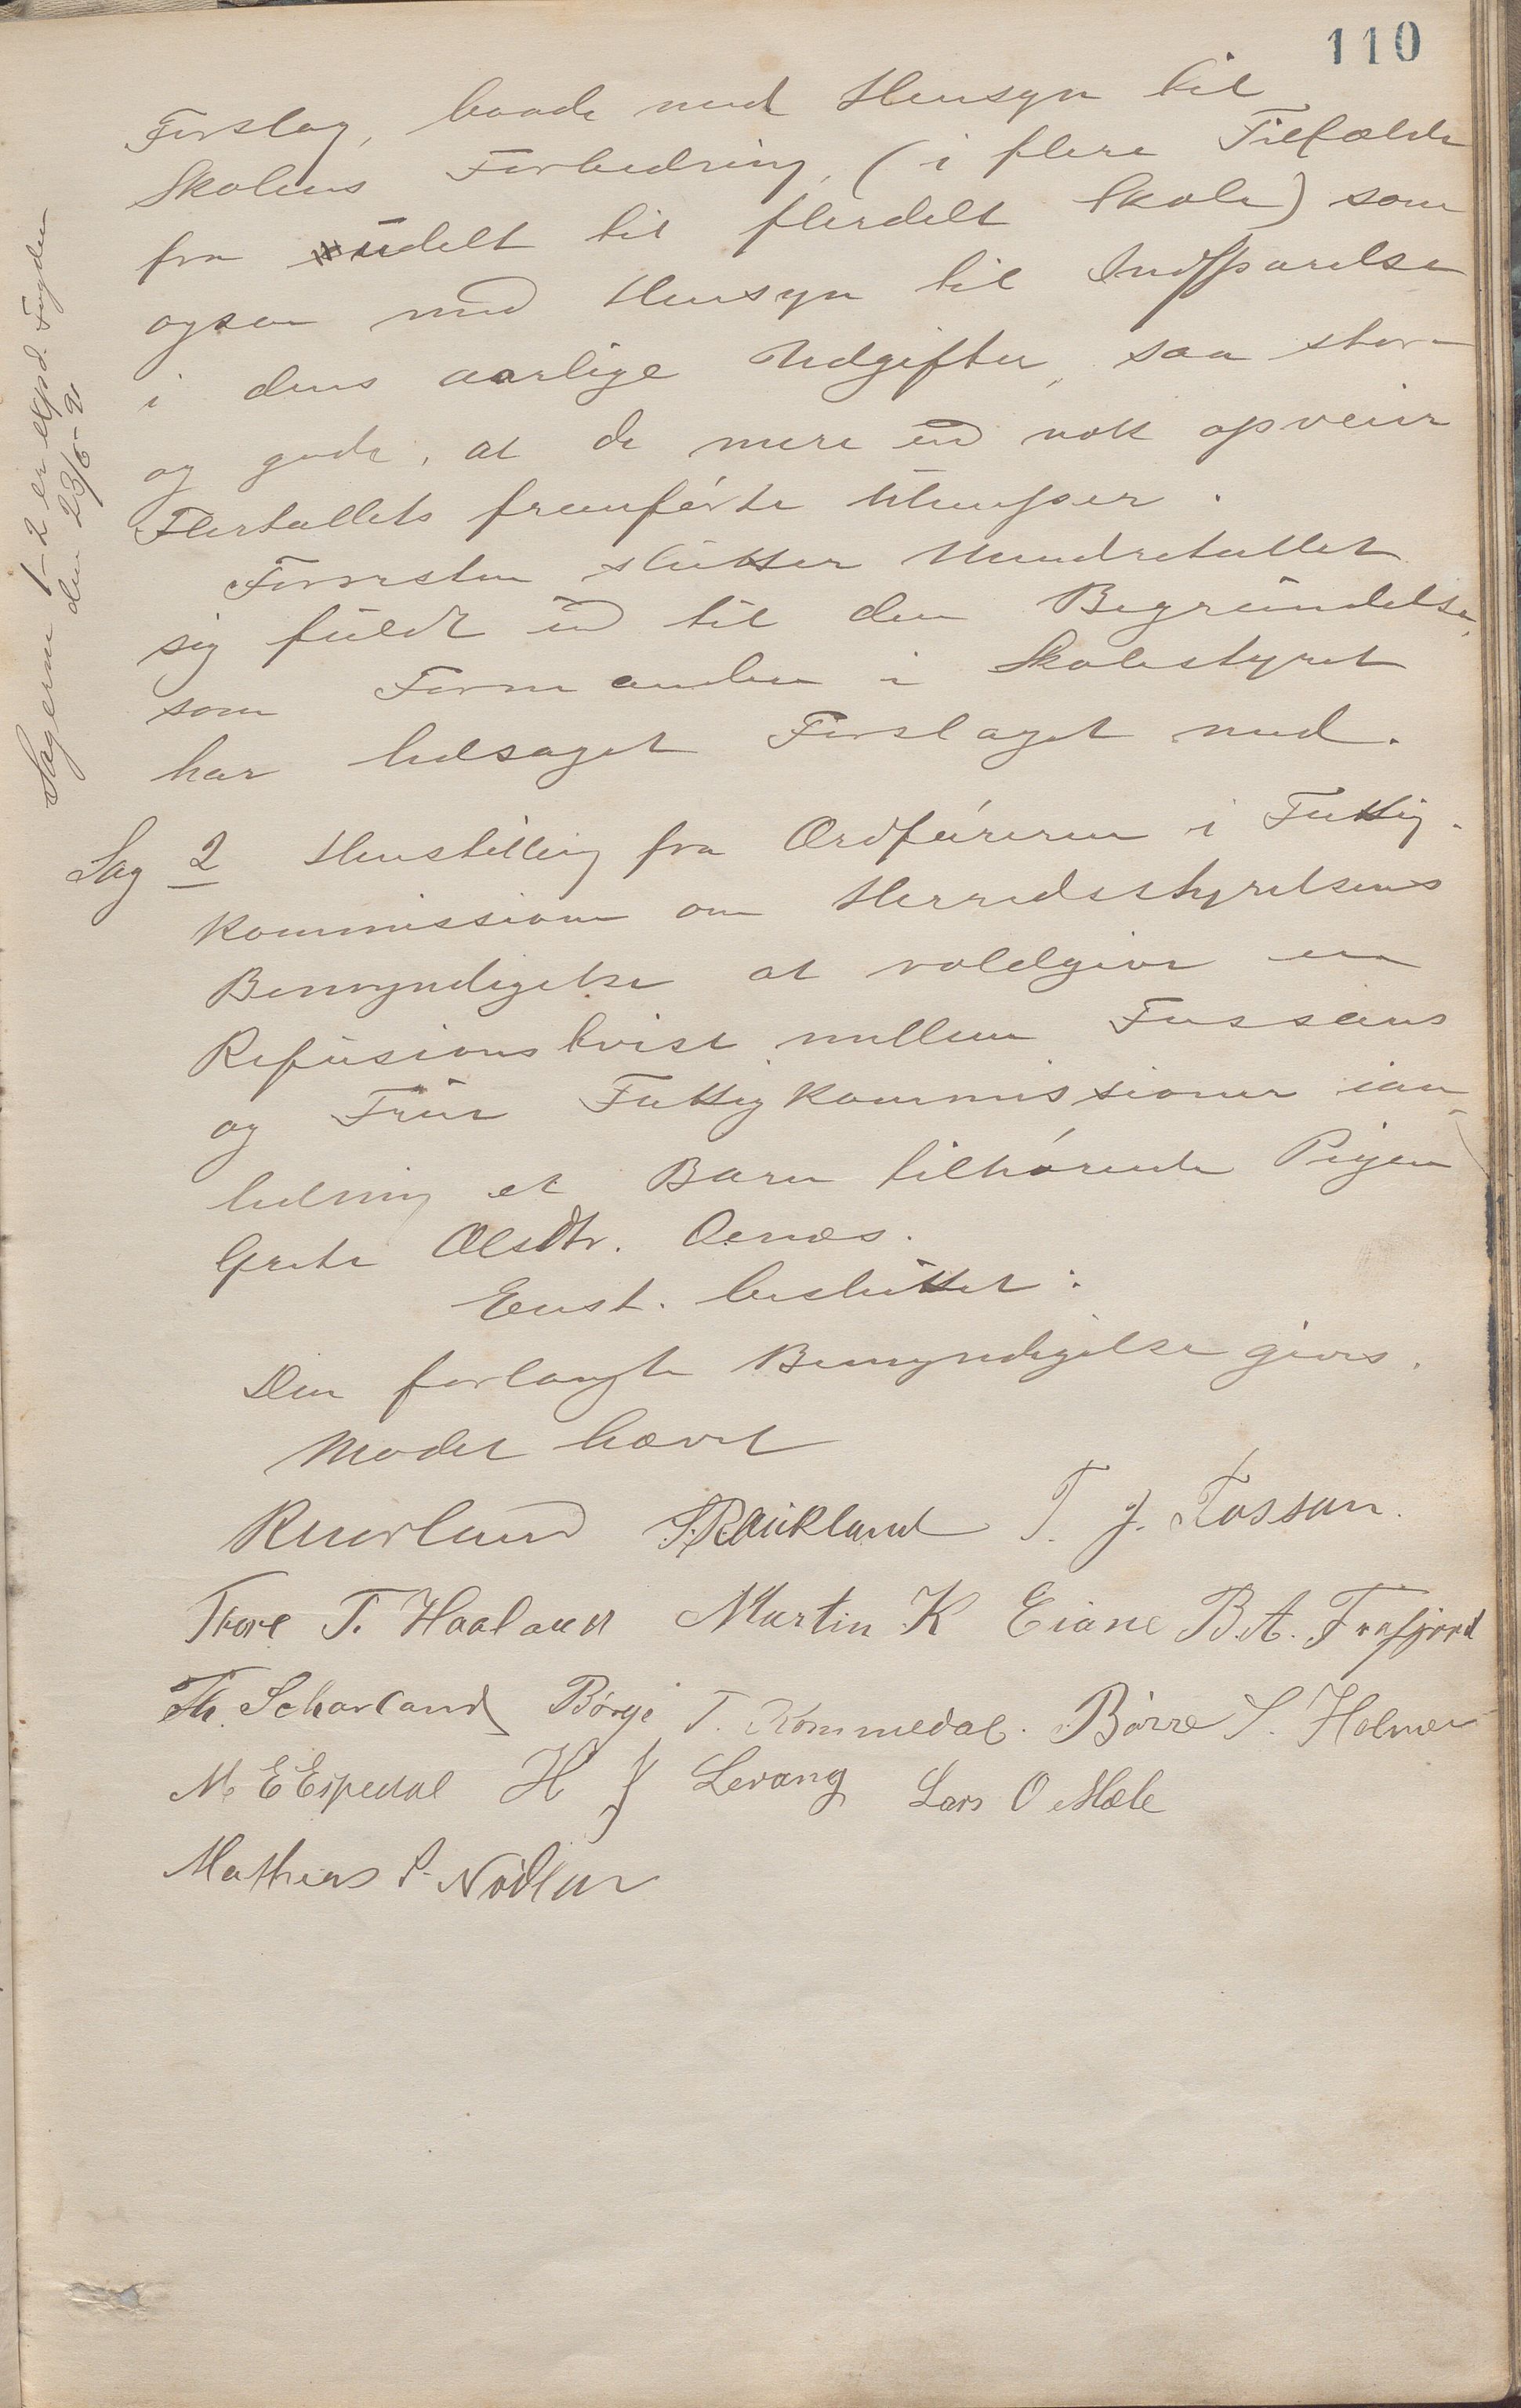 110
Forslag, baade med Hensyn til
Skolens Forbedring, (i flere Tilfælde
fra udelt til flerdelt Skole) som
ogsaa med Hensyn til Indsparelse
i dens aarlige Udgifter, saa store
og gode, at de mere end nok opveier
Flertallets fremførte Ulemper.
Forresten slutter Mindretallet
sig fuldt ud til den Begrundelse,
som Formanden i Skolestyret
har ledsaget Forslaget med.
Sag 2 Henstilling fra Ordføreren i Fattig-
kommissionen om Herredsstyrelsens
Bemyndigelse at voldgive en
Refusionstvist mellem Fossans
og Tius Fattigkommissioner ian-
ledning et Barn tilhørende Pigen
Grete Olsdtr. Oenæs.
Enst. besluttet:
Den forlangte Bemyndigelse gives.
Mødet hævet
S. Raukland T. J. Fossan.
Tore T. Haaland Martin K Eiane B. A. Frafjord
Th. Scharland Børge T. Kommedal. Børre S. Holmen
M E Espedal H J Levang Lars O Mæle
Mathias P. Nødland
Sagerne 1-2 er expd. Fogden
den 23/6-91